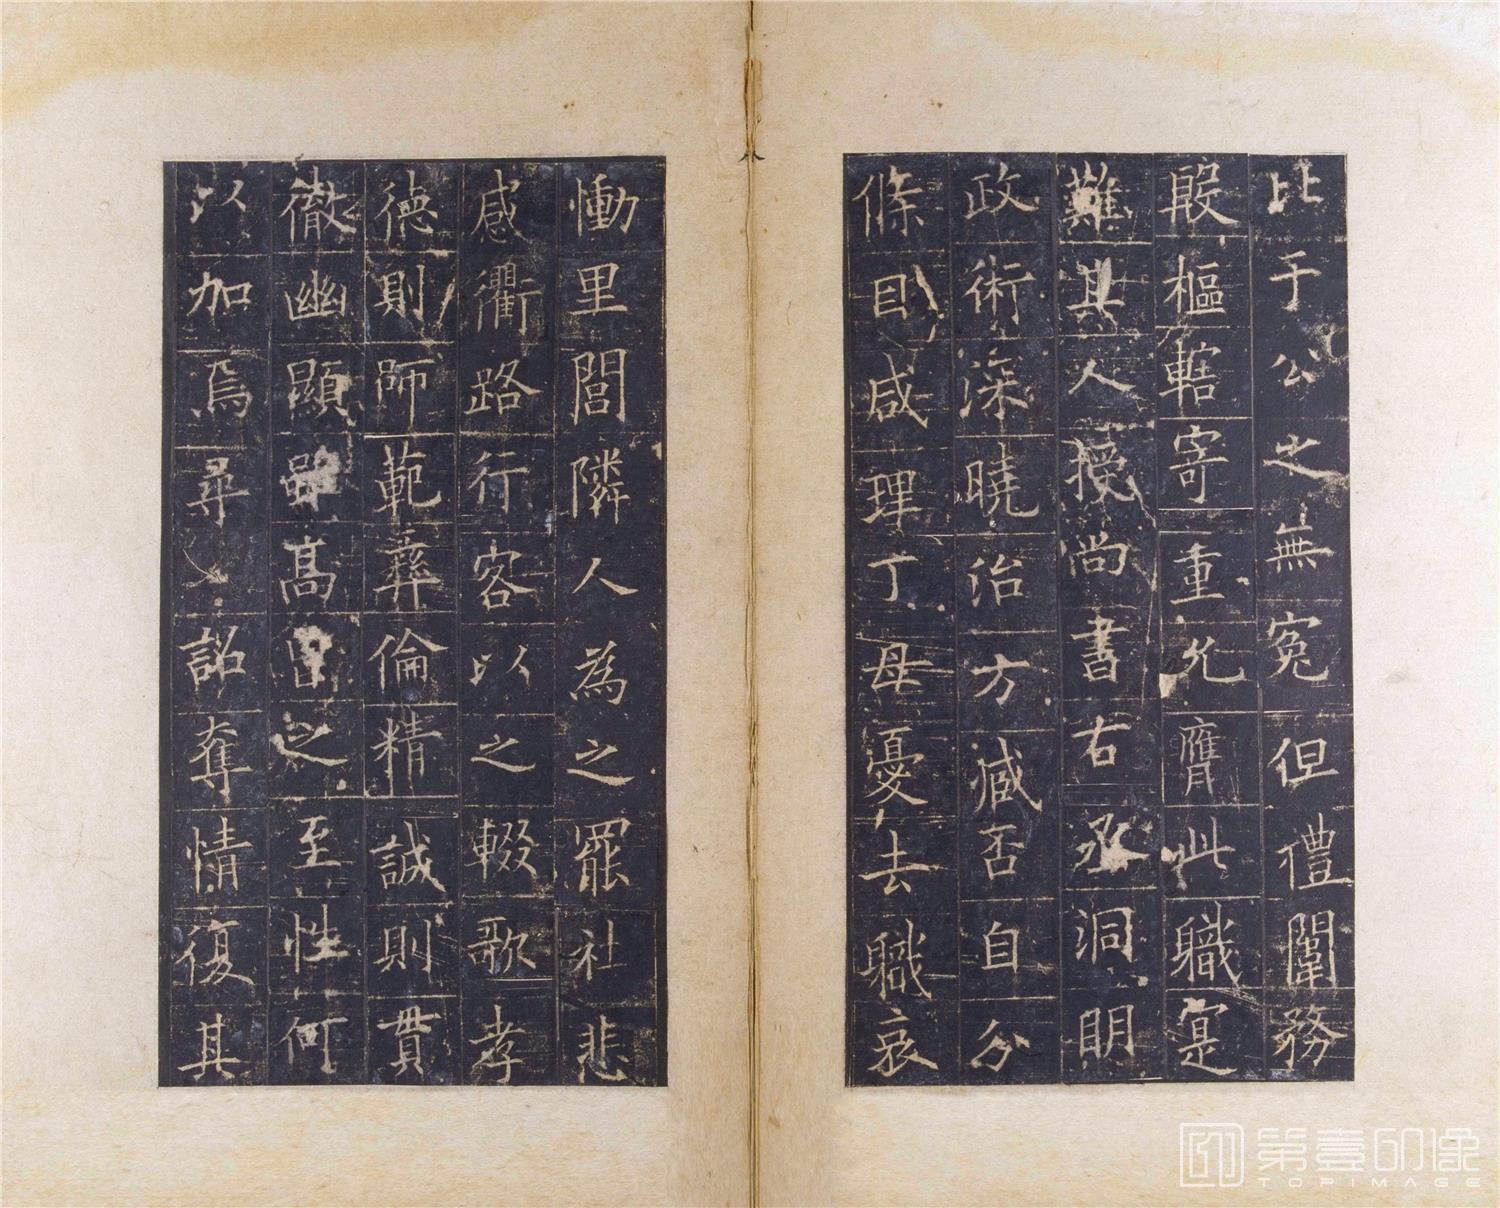 比于公之無冤但禮闈務
殷樞轄寄重允膺此職寔
難其人授尚書右丞洞明
政術深曉治方臧否自分
條目咸理丁母憂去職哀
慟里閭隣人為之罷社悲
感衢路行客以之輟歌孝
德則師範彝倫精誠則貫
徹幽顯雖高曾之至性何
以加焉尋有詔奪情復其
第壹印像
TOPIMAGE